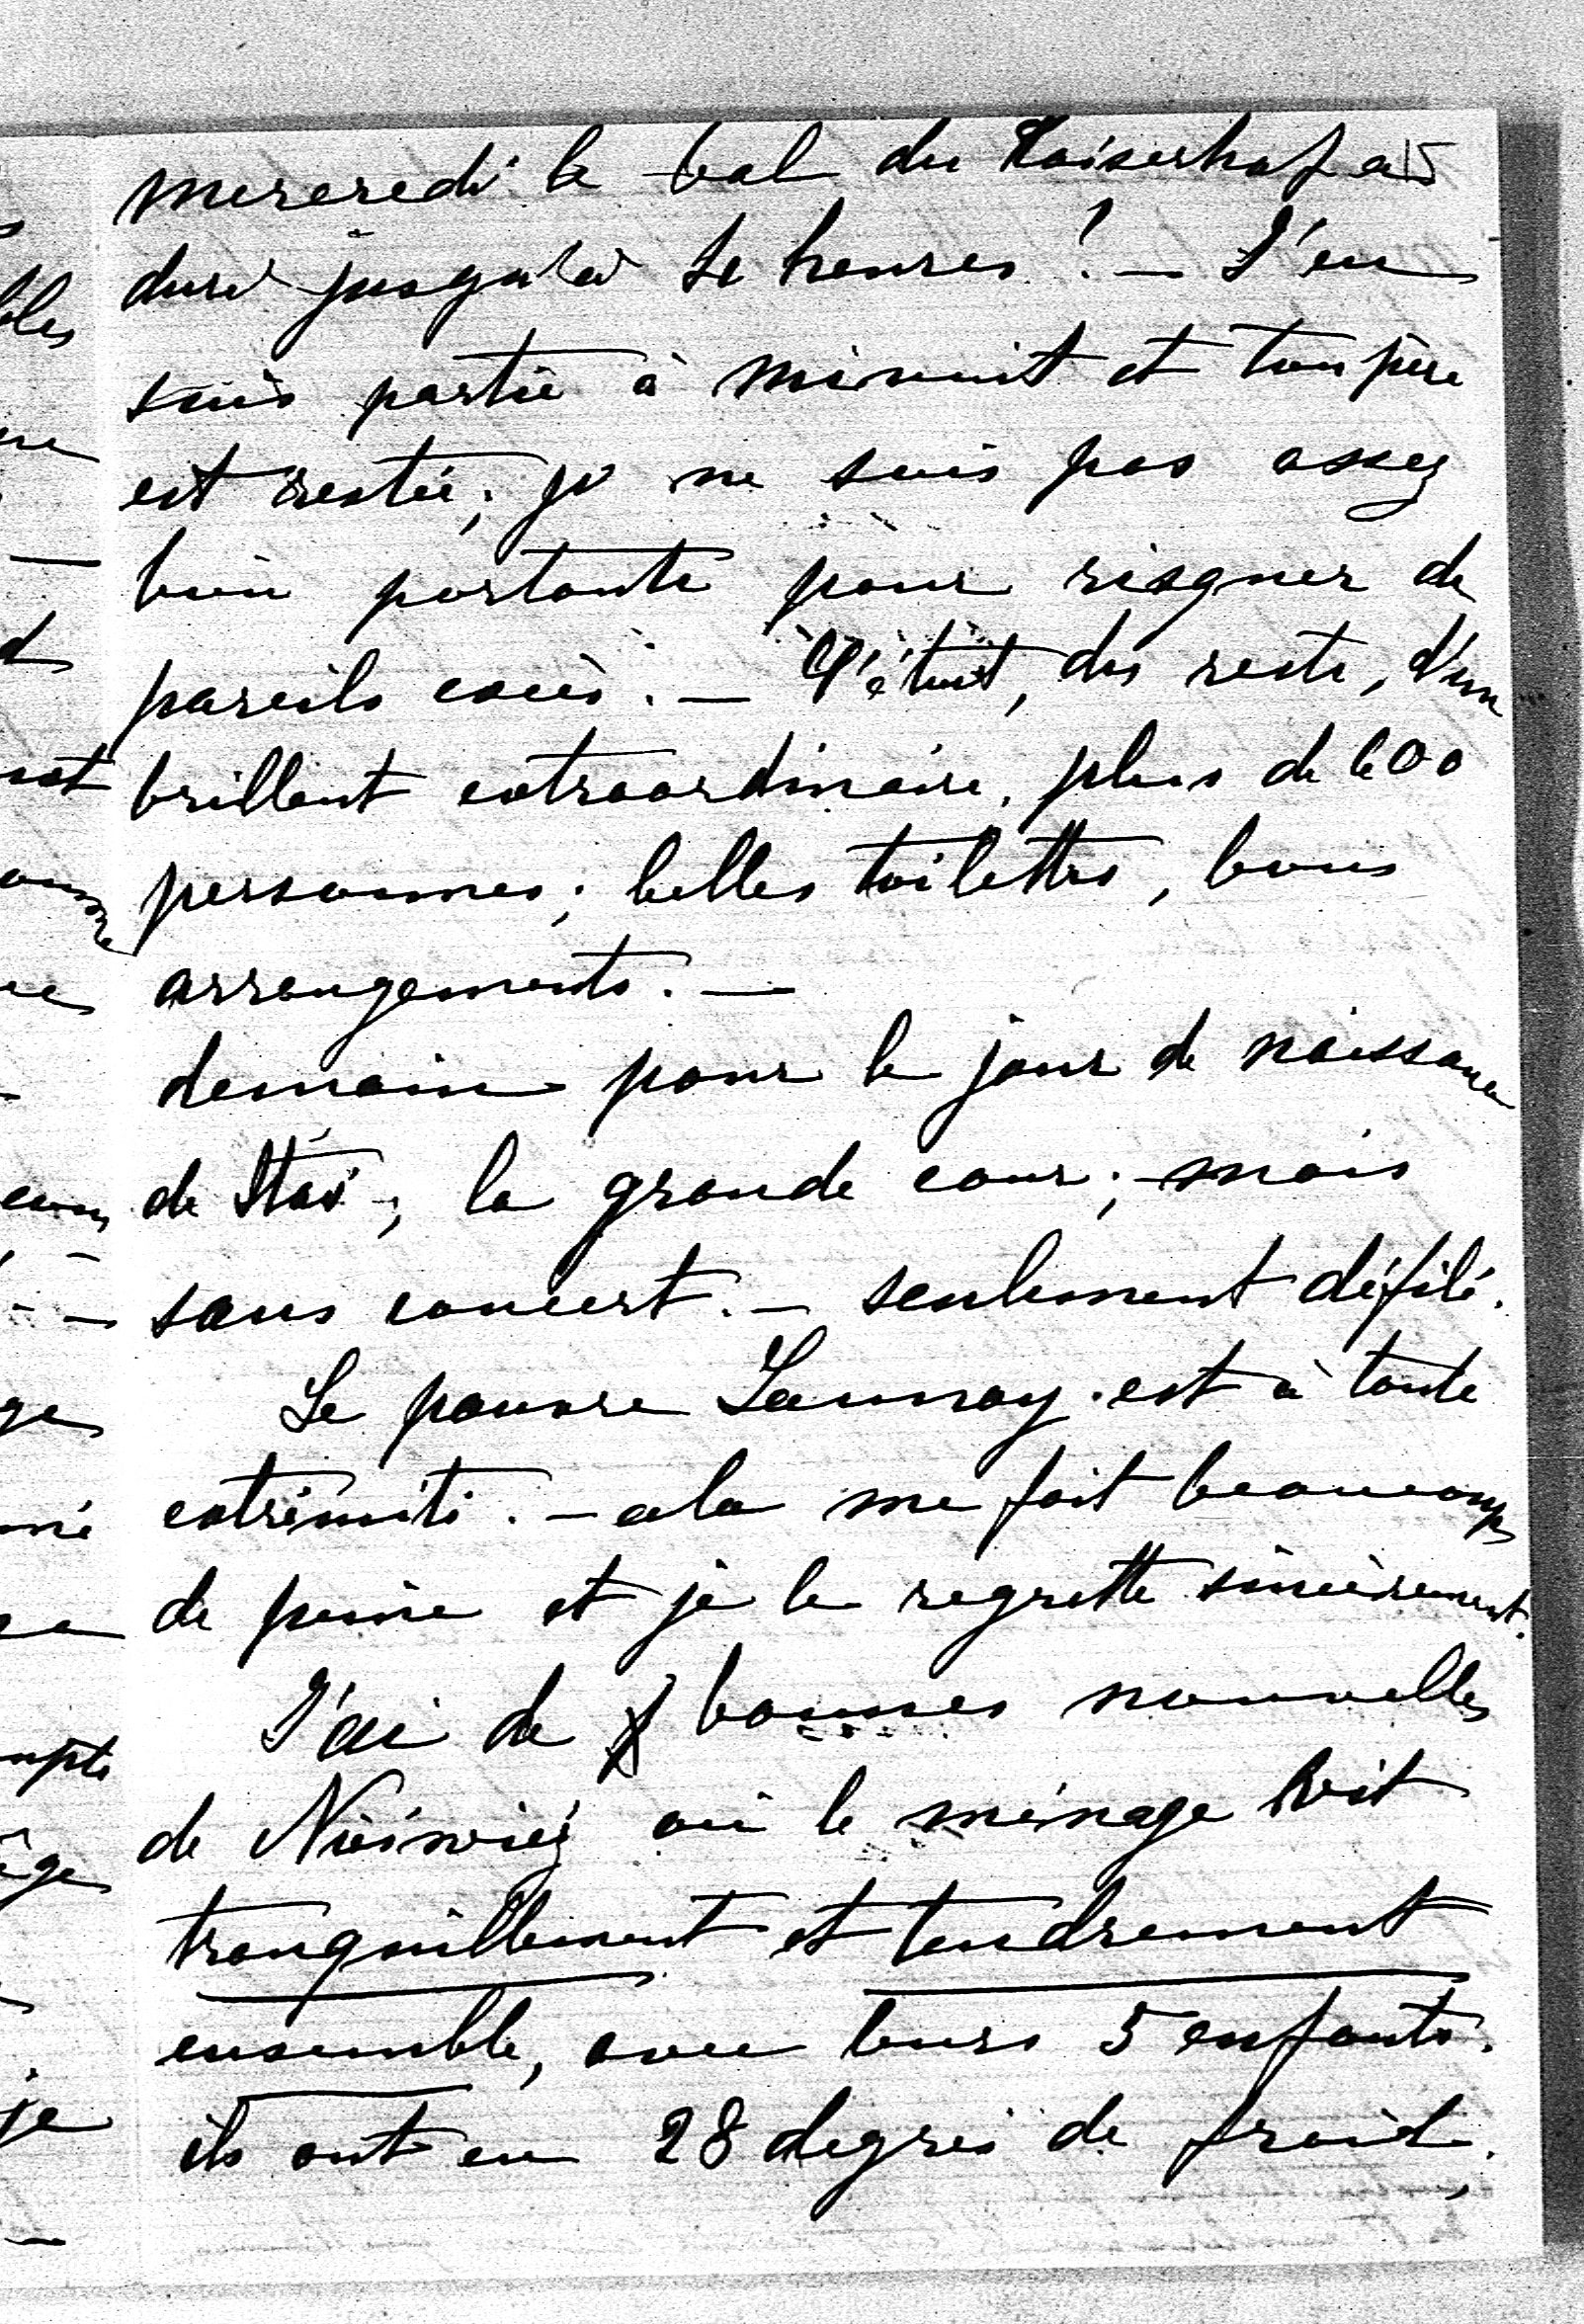 15
mercredi le bal du Kaiserhof a
duré jusqu'à 4 heures! — J'en
suis partie à minuit et ton père
est resté; je ne suis pas assez
bien portante pour risquer de
pareils excès. — C'était, du reste, d'un
brillant extraordinaire, plus de 600
personnes; belles toilettes, bons
arrangements. —
demain pour le jour de naissance
de Stas, la grande cour; mais
sans concert. — seulement défilé.
Le pauvre Launay est à toute
extrémité. — cela me fait beaucoup
de peine et je le regrette sincèrement.
J'ai de bonnes nouvelles
de Nieśwież où le ménage vit
tranquillement et tendrement
ensemble, avec leurs 5 enfants.
ils ont eu 28 degrés de froid;